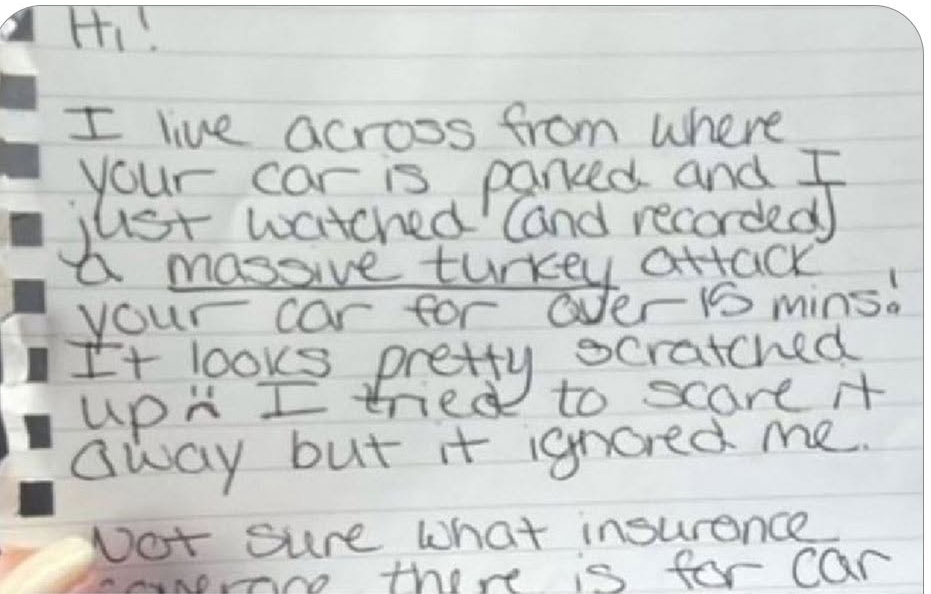 Hi!
I live across from where
your car is parked and I
just watched (and recorded)
a massive turkey attack
your car for over 15 mins!
It looks pretty scratched
up :( I tried to scare it
away but it ignored me.
Not sure what insurance
coverage there is for car